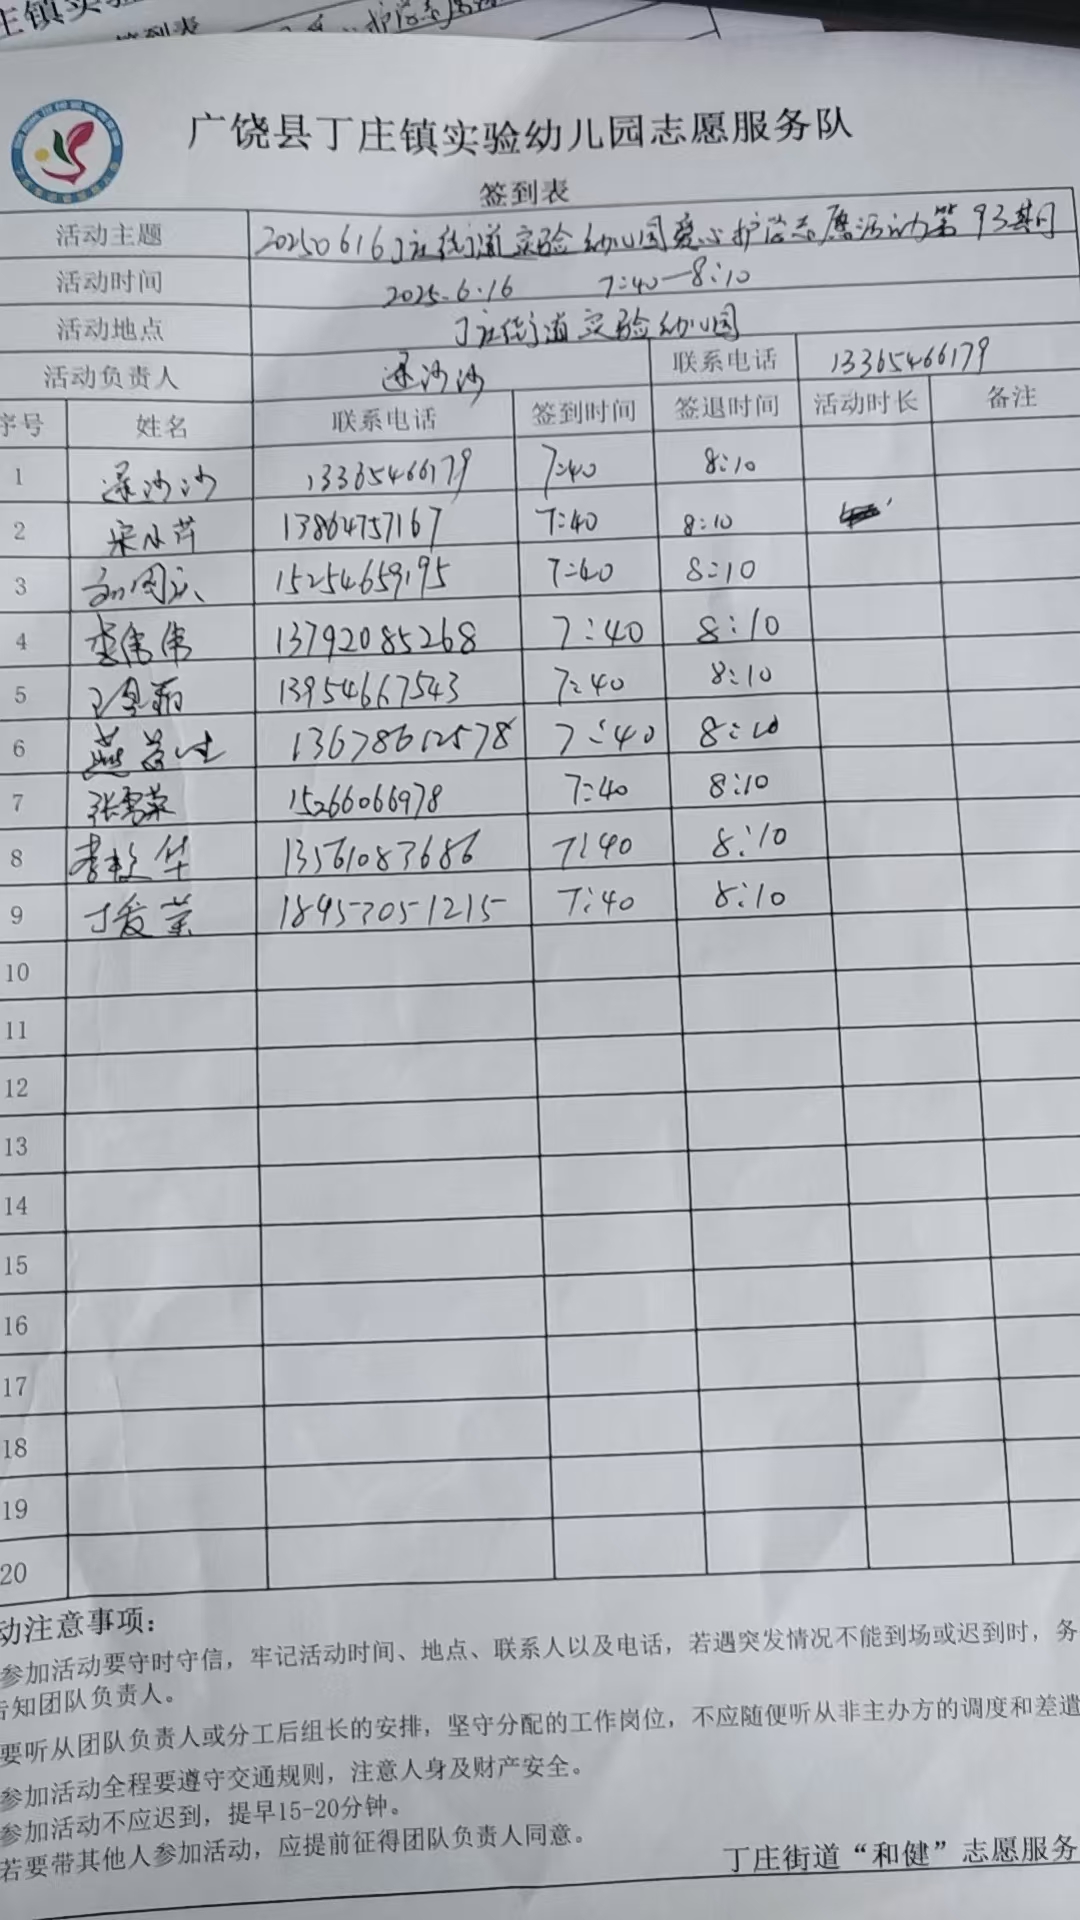 签到表
广饶县丁庄镇实验幼儿园志愿服务队
签到表
活动主题 20250616丁庄街道实验幼儿园爱心护学志愿活动第93期
活动时间 2025.6.16 7:40—8:10
活动地点 丁庄街道实验幼儿园
活动负责人 逯沙沙 联系电话 13365466179
序号 姓名 联系电话 签到时间 签退时间 活动时长 备注
1 逯沙沙 13365466179 7:40 8:10
2 宋水芹 13864757167 7:40 8:10
3 15254659195 7:40 8:10
4 李伟伟 13792085268 7:40 8:10
5 13954667543 7:40 8:10
6 燕 13678612578 7:40 8:10
7 张雪荣 15266066978 7:40 8:10
8 李校华 13561083686 7:40 8:10
9 丁爱 18953051215 7:40 8:10
10
11
12
13
14
15
16
17
18
19
20
动注意事项：
参加活动要守时守信，牢记活动时间、地点、联系人以及电话，若遇突发情况不能到场或迟到时，务
告知团队负责人。
要听从团队负责人或分工后组长的安排，坚守分配的工作岗位，不应随便听从非主办方的调度和差遣
参加活动全程要遵守交通规则，注意人身及财产安全。
参加活动不应迟到，提早15-20分钟。
若要带其他人参加活动，应提前征得团队负责人同意。
丁庄街道“和健”志愿服务